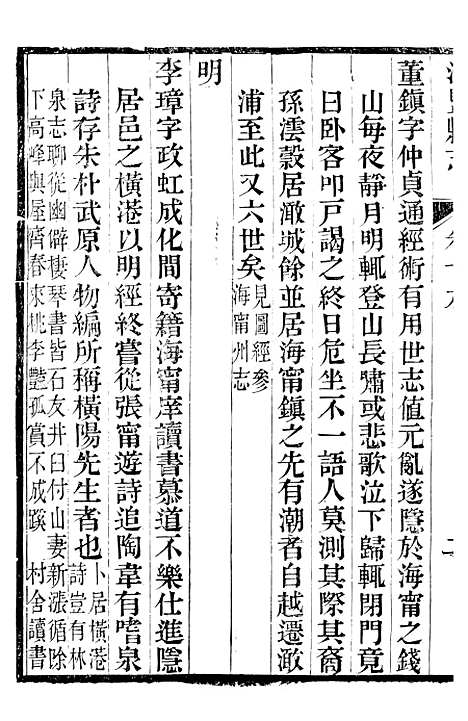 海鹽縣志
卷十九
二
董鎮字仲貞通經術有用世志值元亂遂隱於海甯之錢
山每夜靜月明輒登山長嘯或悲歌泣下歸輒閉門竟
日卧客叩戸謁之終日危坐不一語人莫測其際其裔
孫澐穀居澉城餘並居海甯鎮之先有潮者自越遷澉
浦至此又六世矣見圖經參
海甯州志
明
李璋字政虹成化間寄籍海甯庠讀書慕道不樂仕進隱
居邑之橫港以明經終嘗從張甯遊詩追陶韋有嗜泉
詩存朱朴武原人物編所稱橫陽先生者也卜居橫港
詩豈有林
泉志聊從幽僻棲琴書皆石友井臼付山妻新漲循除
下高峰與屋齊春來桃李豔孤賞不成蹊 村舍讀書